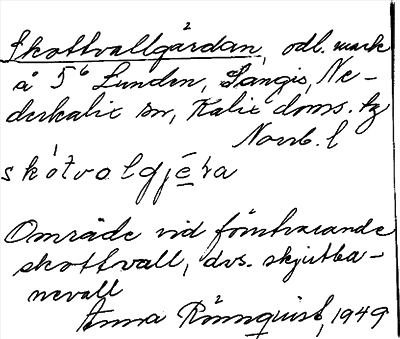 Skottvallgärdan, odl. mark
å 5⁶ Lunden, Sangis, Ne-
derkalix sn, Kalix doms. tg
Norrb. l
skótvolgjɛ̱ra
Område vid förutvarande
skottvall, dvs. skjutba-
nevall
Anna Rönnquist, 1949